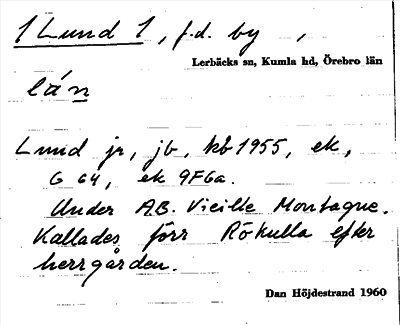 1 Lund 1, f.d. by ,
Lerbäcks sn, Kumla hd, Örebro län
lán
Lund jr, jb, kb 1955, ek,
G 64, ek 9F6a.
Under AB. Vieille Montagne.
Kallades förr Rökulla efter
herrgården.
Dan Höjdestrand 1960